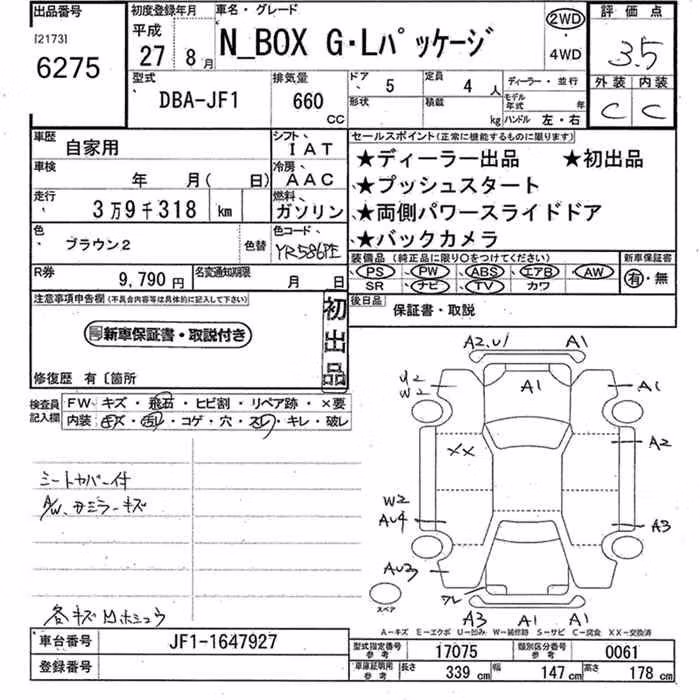 出品番号 初度登録年月 車名・グレード 2WD 評価点
[2173] 平成
6275 27 8月 N_BOX G・Lパッケージ ・ 3.5
4WD
型式 排気量 ドア 5 定員 4人 ディーラー・並行 外装 内装
DBA-JF1 660 CC 形状 積載 kg モデル年式 年 C C
ハンドル 左・右
車歴 自家用 シフト、IAT セールスポイント(正常に機能するものに限ります)
車検 年 月( 日) 冷房、AAC ★ディーラー出品 ★初出品
走行 3万9千318 km 燃料、ガソリン ★プッシュスタート
★両側パワースライドドア
色 ブラウン2 色替 色コード、YR586PE ★バックカメラ
R券 9,790円 名変通知期限 月 日 装備品(純正品に限り○をつけてください) 新車保証書
PS・PW・ABS・エアB・AW 有・無
SR ナビ・TV カワ
注意事項申告欄(不具合内容等は具体的に記入して下さい) 初出品 後日品 保証書・取説
新車保証書・取説付き
修復歴 有〔箇所
検査員記入欄 FW キズ・飛石・ヒビ割・リペア跡・×要
内装、キズ・汚レ・コゲ・穴・スレ・キレ・破レ
シートカバー付
A/W、サミラーキズ
各キズ凹ホシュウ
A2.U1 A1
U2 A1 A1
W2
XX A2
W2
AU4 A3
AU3
ワレ
スペア A3 A1 A1
A−キズ E−エクボ U−凹み W−補修跡 S−サビ C−腐食 XX−交換済
車台番号 JF1-1647927 型式指定番号 参考 17075 類別区分番号 参考 0061
登録番号 車庫証明用 参考 長さ 339 cm 幅 147 cm 高さ 178 cm